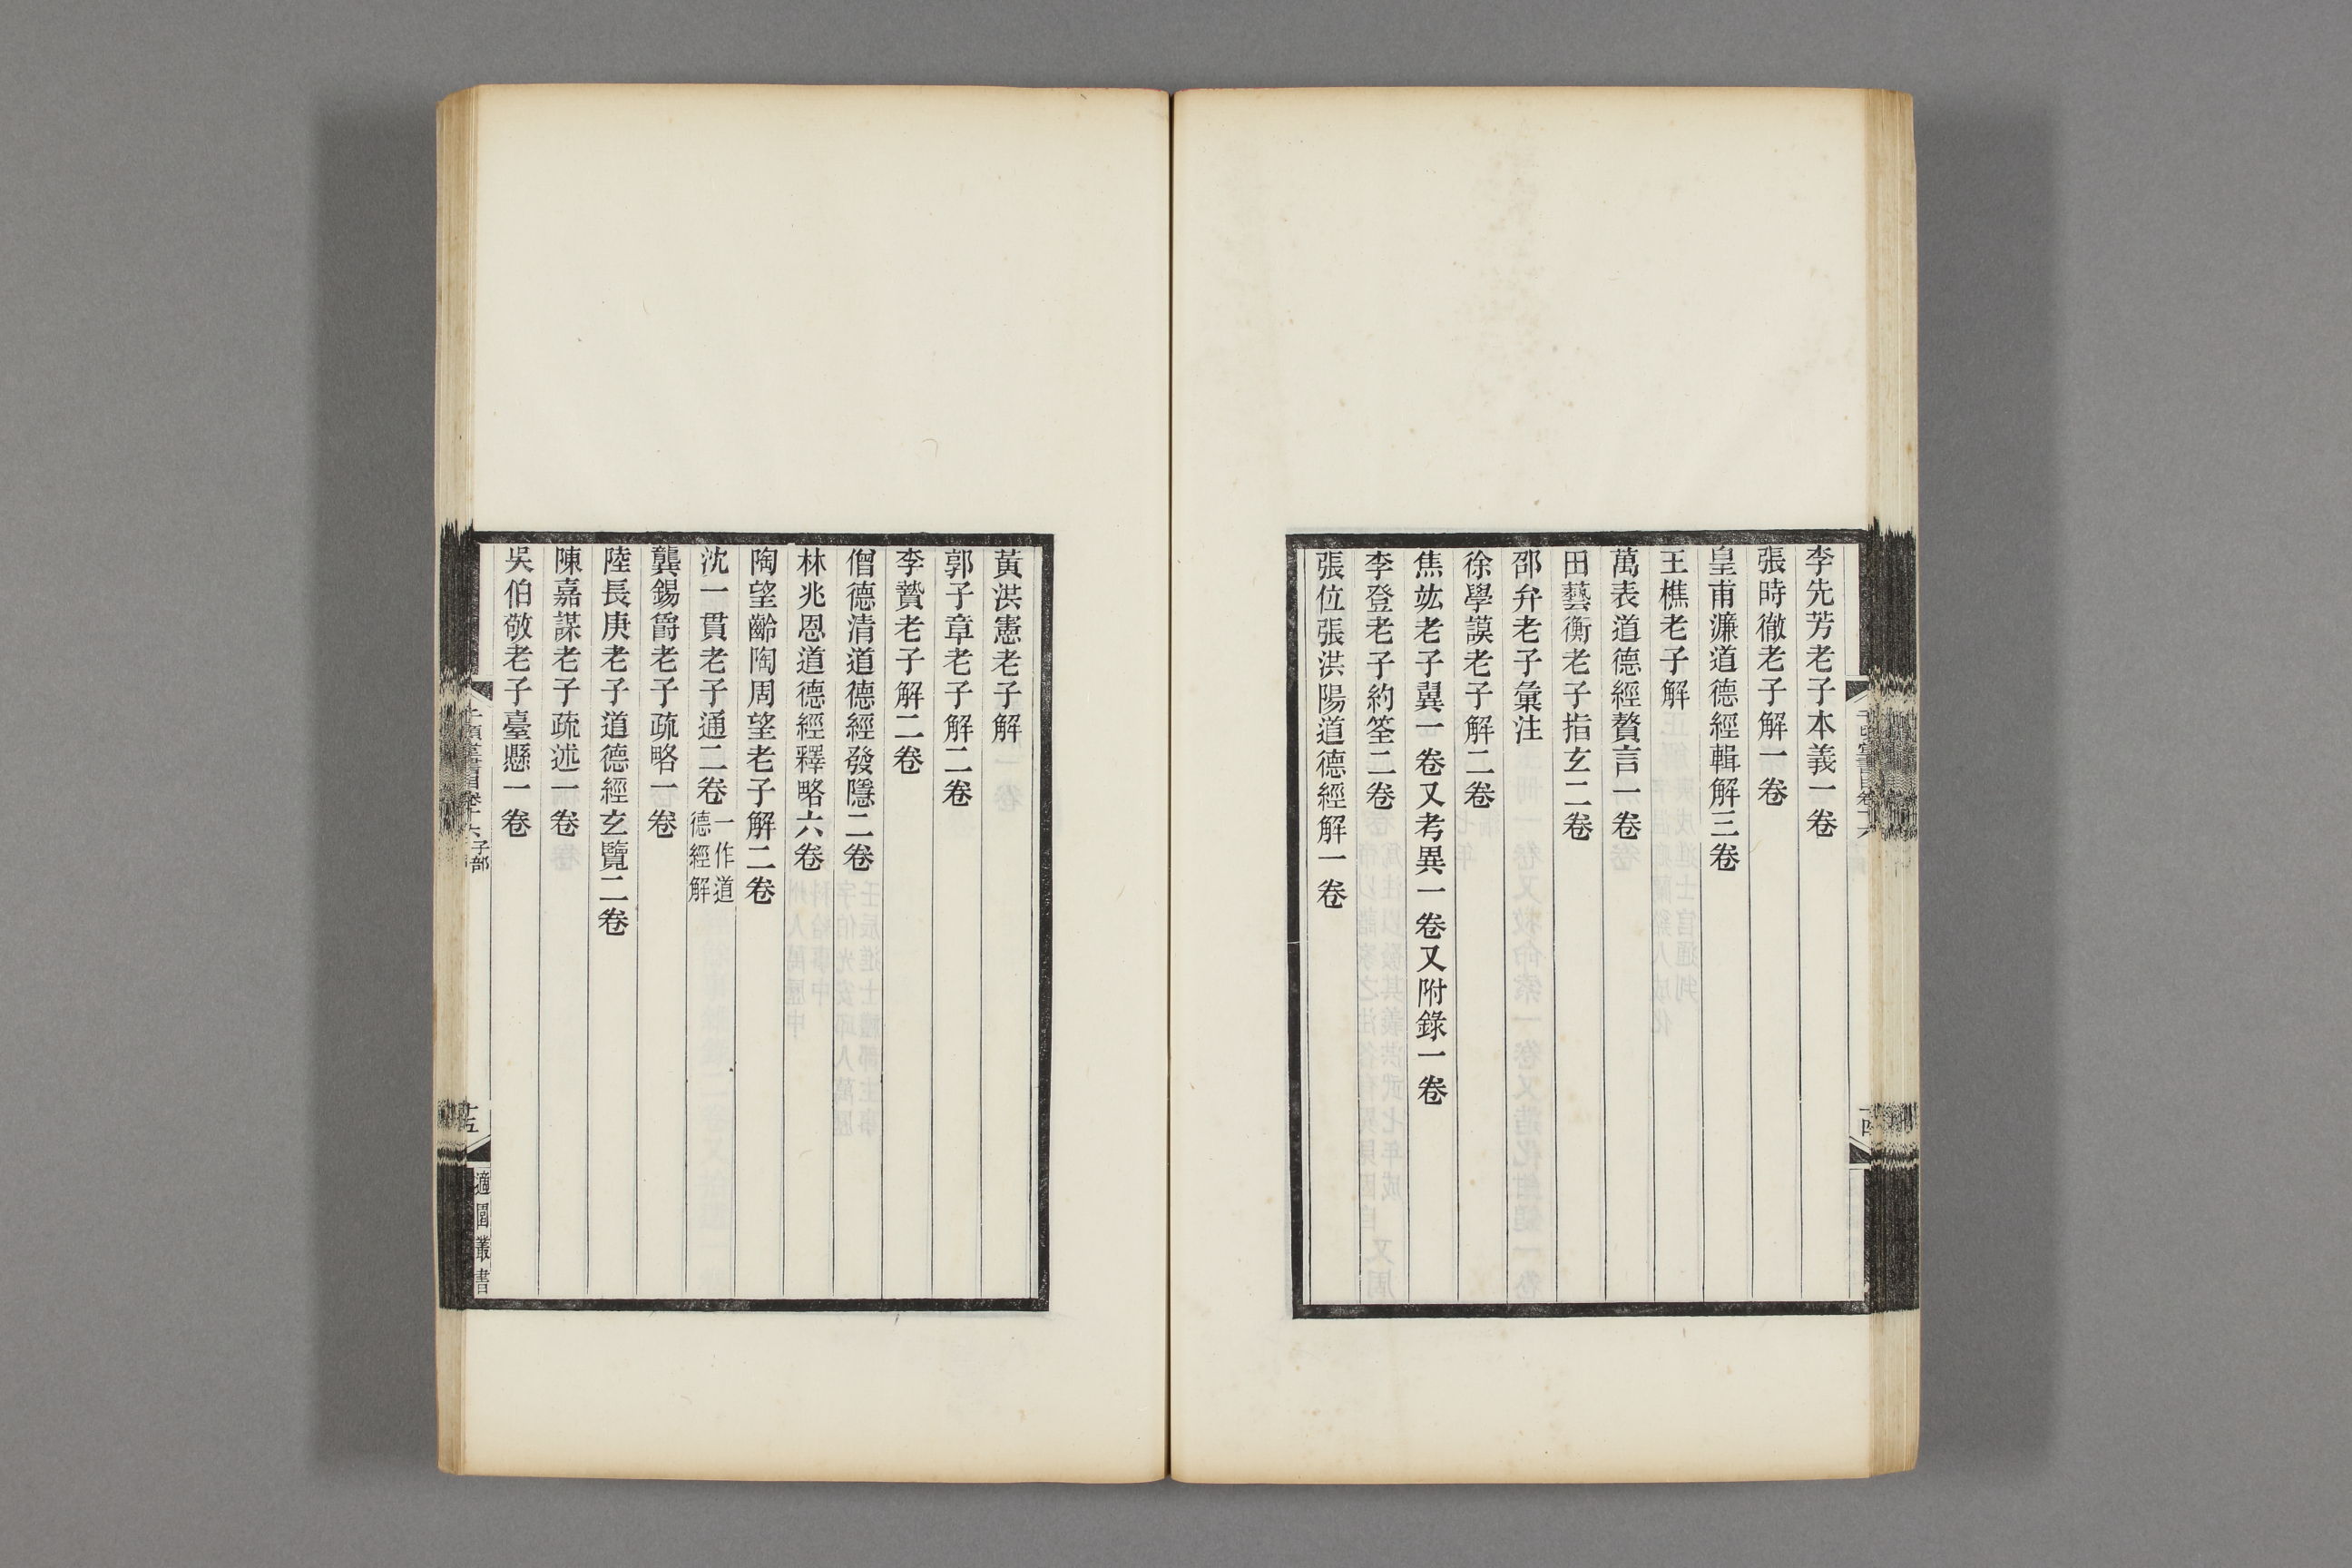 李先芳老子本義一卷
張時徹老子解一卷
皇甫濂道德經輯解三卷
王樵老子解
萬表道德經贅言一卷
田藝衡老子指玄二卷
邵弁老子彙注
徐學謨老子解二卷
焦竑老子翼一卷又考異一卷又附錄一卷
李登老子約筌二卷
張位張洪陽道德經解一卷
黃洪憲老子解
郭子章老子解二卷
李贄老子解二卷
僧德清道德經發隱二卷
林兆恩道德經釋略六卷
陶望齡陶周望老子解二卷
沈一貫老子通二卷一作道
德經解
龔錫爵老子疏略一卷
陸長庚老子道德經玄覽二卷
陳嘉謀老子疏述一卷
吳伯敬老子臺懸一卷
千頃堂書目卷十六子部
十五
適園叢書